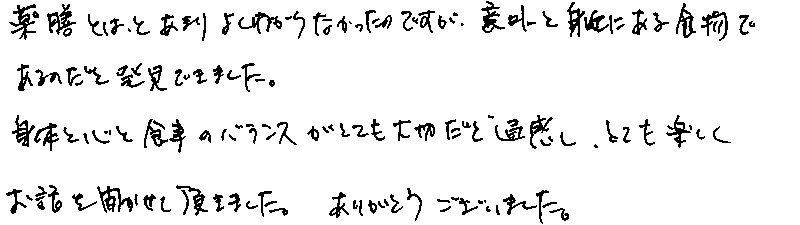 薬膳とは、とあまりよくわからなかったのですが、意外と身近にある食物で
あるのだと発見できました。
身体と心と食事のバランスがとても大切だと痛感し、とても楽しく
お話を聞かせて頂きました。 ありがとうございました。